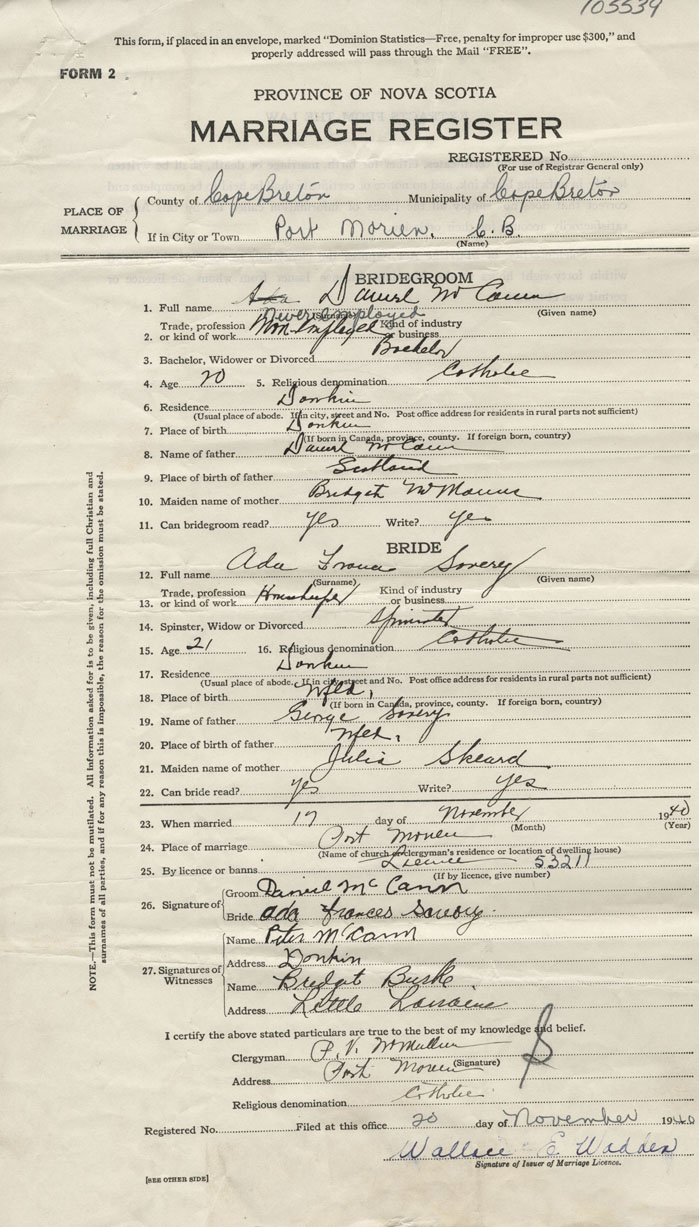 103539
This form, if placed in an envelope, marked “Dominion Statistics—Free, penalty for improper use $300,” and
properly addressed will pass through the Mail “FREE”.
FORM 2
PROVINCE OF NOVA SCOTIA
MARRIAGE REGISTER
REGISTERED No.
(For use of Registrar General only)
PLACE OF MARRIAGE
County of Cape Breton Municipality of Cape Breton
If in City or Town Port Morien. C.B.
(Name)
BRIDEGROOM
1. Full name Daniel McCann
(Surname) (Given name)
Never Employed
2. Trade, profession or kind of work Non-Employed Kind of industry or business
3. Bachelor, Widower or Divorced Bachelor
4. Age 20 5. Religious denomination Catholic
6. Residence Donkin
(Usual place of abode. If in city, street and No. Post office address for residents in rural parts not sufficient)
7. Place of birth Donkin
(If born in Canada, province, county. If foreign born, country)
8. Name of father Daniel McCann
9. Place of birth of father Scotland
10. Maiden name of mother Bridget McManus
11. Can bridegroom read? yes Write? yes
BRIDE
12. Full name Ada Frances Savery
(Surname) (Given name)
13. Trade, profession or kind of work Housekeeper Kind of industry or business
14. Spinster, Widow or Divorced Spinster
15. Age 21 16. Religious denomination Catholic
17. Residence Donkin
(Usual place of abode. If in city, street and No. Post office address for residents in rural parts not sufficient)
18. Place of birth Nfld.
(If born in Canada, province, county. If foreign born, country)
19. Name of father George Savery
20. Place of birth of father Nfld.
21. Maiden name of mother Julia Skeard
22. Can bride read? yes Write? yes
23. When married 17 day of November 1940
(Month) (Year)
24. Place of marriage Port Morien
(Name of church or clergyman's residence or location of dwelling house)
25. By licence or banns License 53211
(If by licence, give number)
26. Signature of
Groom Daniel McCann
Bride Ada Frances Savory
27. Signatures of Witnesses
Name Peter McCann
Address Donkin
Name Bridget Burke
Address Little Lorraine
I certify the above stated particulars are true to the best of my knowledge and belief.
Clergyman P. V. McMullin
(Signature)
Address Port Morien
Religious denomination Catholic
Registered No. Filed at this office 20 day of November 1940
Wallace E Wadden
Signature of Issuer of Marriage Licence.
[SEE OTHER SIDE]
NOTE.—This form must not be mutilated. All information asked for is to be given, including full Christian and
surnames of all parties, and if for any reason this is impossible, the reason for the omission must be stated.